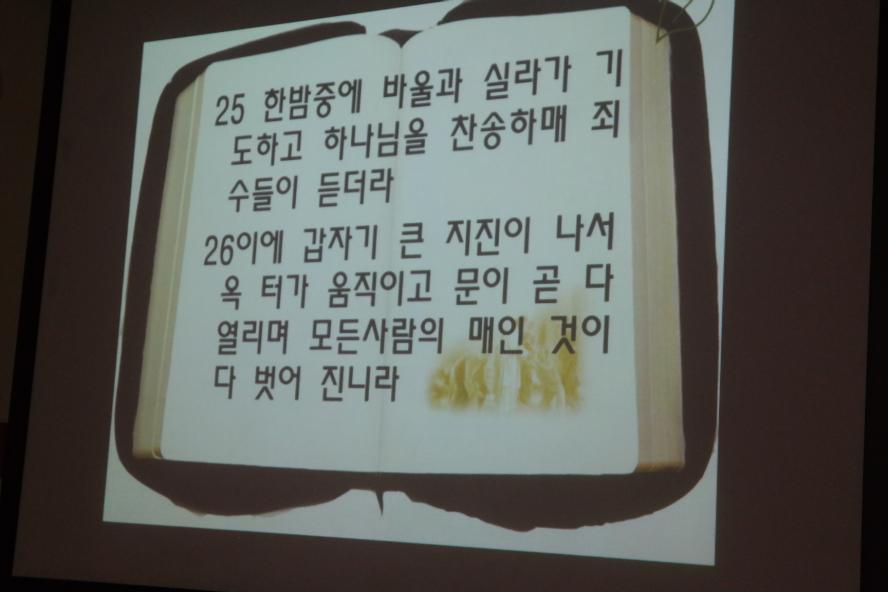 25 한밤중에 바울과 실라가 기
도하고 하나님을 찬송하매 죄
수들이 듣더라
26이에 갑자기 큰 지진이 나서
옥 터가 움직이고 문이 곧 다
열리며 모든사람의 매인 것이
다 벗어 진니라